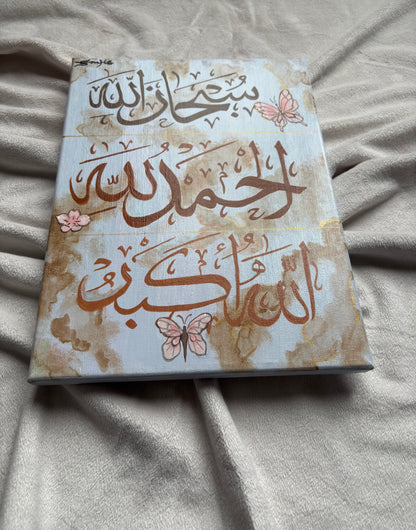 سُبْحَانَ اللّٰه
الحَمْدُ لِلّٰه
اللّٰهُ أَكْبَر